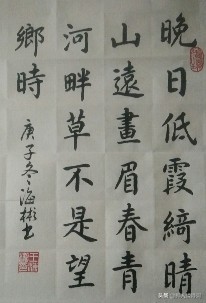 晚日低霞綺晴
山遠畫眉春青
河畔草不是望
鄉時
庚子冬海彬书